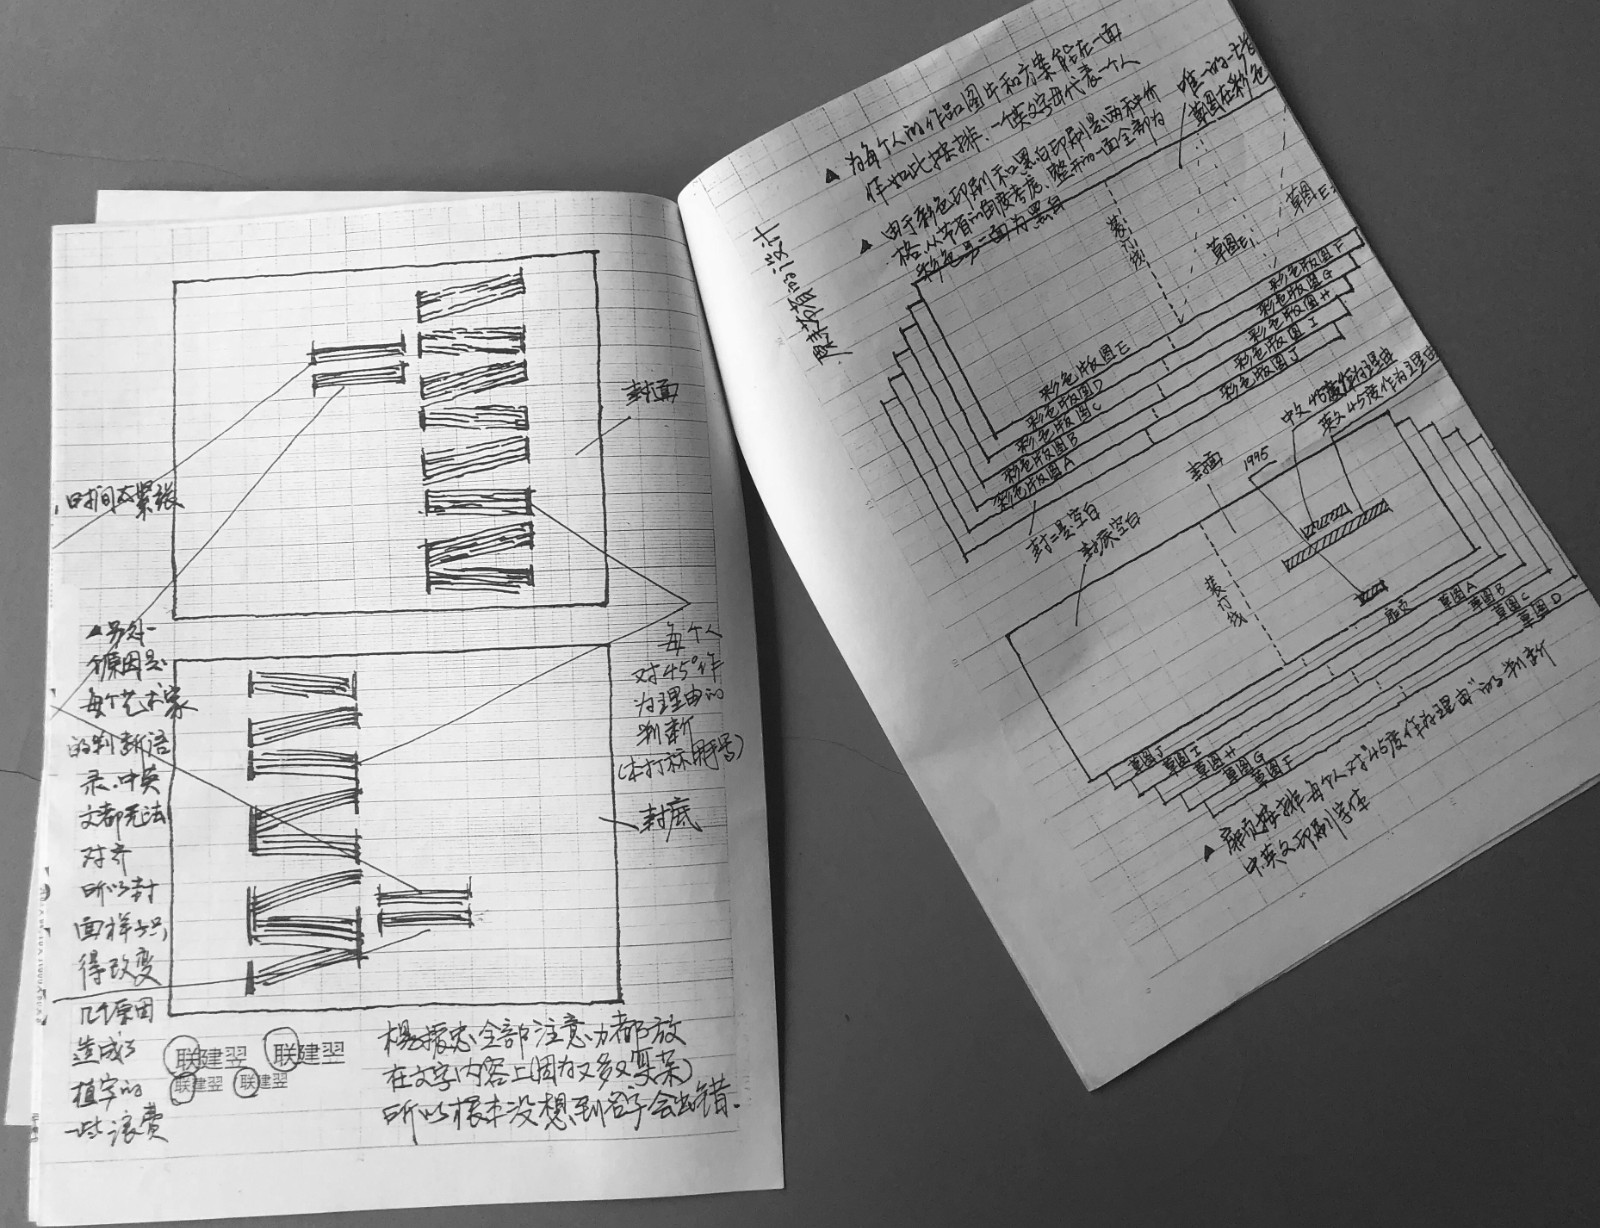 旧时间太紧张
封面
▲另外一
个原因是
每个艺术家
的判断语
录、中英
文都无法
对齐
所以封
面样式只
得改变
几个原因
造成了
植字的
一些浪费
每个人
对45°作
为理由的
判断
(本打标用号)
封底
联建翌 联建翌
联建翌 联建翌
杨振忠全部注意力都放
在文字内容上(因为又多又复杂)
所以根本没想到名字会出错.
▲ 为每个人的作品图片和方案能在一面
作如此按排、一个英文字母代表一个人
▲ 由于彩色印刷和黑白印刷是两种价
格、从节省的角度考虑、整开的一面全部为
彩色另一面为黑白
唯一的一
草图在彩色
装订线
草图E₁
草图E₂
彩色版图E
彩色版图D
彩色版图C
彩色版图B
彩色版图A
彩色版图F
彩色版图G
彩色版图H
彩色版图I
彩色版图J
封二是空白
封底空白
封面
1995
中文45度作为理由
英文45度作为理由
装订线
扉页
草图A
草图B
草图C
草图D
草图J
草图I
草图H
草图G
草图F
▲ 扉页按排每个人对"45度作为理由"的判断
中英文印刷字体